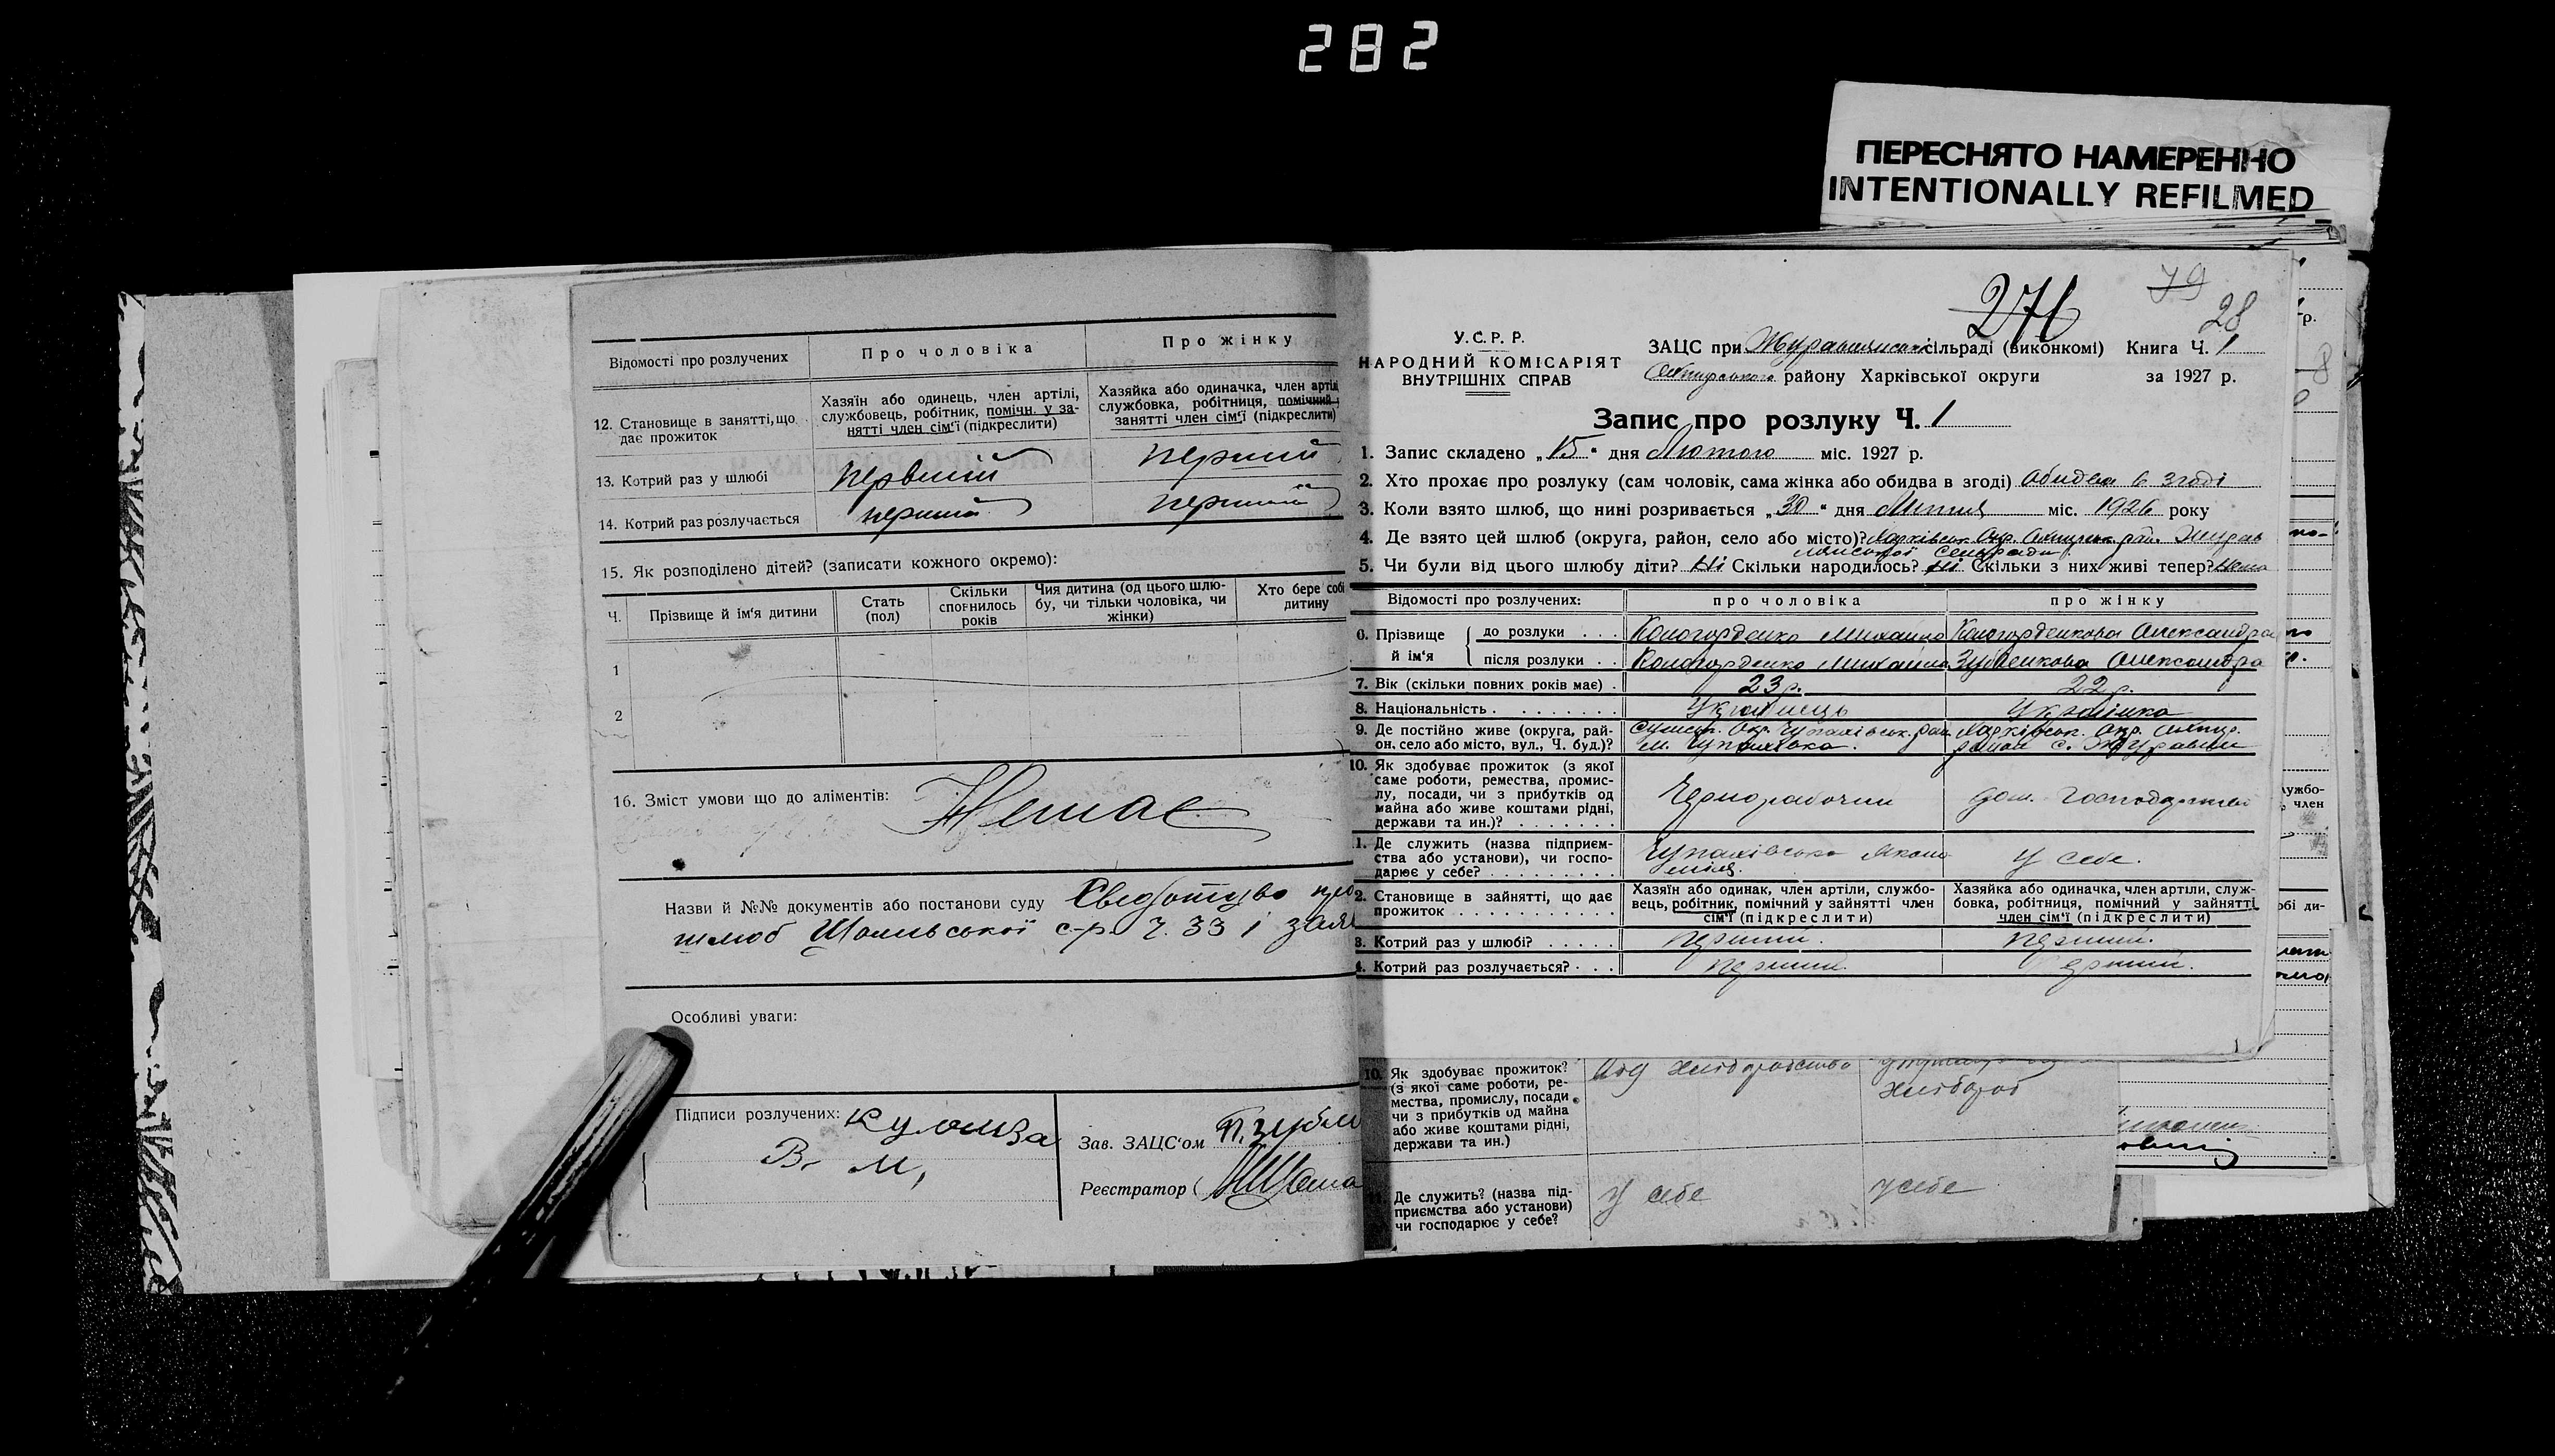 282
ПЕРЕСНЯТО НАМЕРЕННО
INTENTIONALLY REFILMED
Відомості про розлучених
Про чоловіка
Про жінку
12. Становище в занятті, що дає прожиток
Хазяїн або одинець, член артілі,
службовець, робітник, помічн. у за-
нятті член сім'ї (підкреслити)
Хазяйка або одиначка, член артіл
службовка, робітниця, помічний
занятті член сім'ї (підкреслити)
13. Котрий раз у шлюбі
первший
перший
14. Котрий раз розлучається
перший
перший
15. Як розподілено дітей? (записати кожного окремо):
Ч.
Прізвище й ім'я дитини
Стать (пол)
Скільки сповнилось років
Чия дитина (од цього шлю-
бу, чи тільки чоловіка, чи
жінки)
Хто бере собі
дитину
1
2
16. Зміст умови що до аліментів: Немає
Назви й №№ документів або постанови суду Свидотцво про
шлюб с-р. Ч. 33 і заяв
Особливі уваги:
Підписи розлучених:
В. М,
Зав. ЗАЦС'ом
Реєстратор (
79
276
28
У.С.Р.Р.
НАРОДНИЙ КОМІСАРІЯТ
ВНУТРІШНІХ СПРАВ
ЗАЦС при сільраді (виконкомі) Книга Ч. 1
району Харківської округи за 1927 р.
Запис про розлуку Ч. 1
1. Запис складено „15“ дня Лютого міс. 1927 р.
2. Хто прохає про розлуку (сам чоловік, сама жінка або обидва в згоді) Обидва в згоді
3. Коли взято шлюб, що нині розривається „30“ дня Липня міс. 1926 року
4. Де взято цей шлюб (округа, район, село або місто)? Харківськ. Окр. Охтирськ. рай. Журав
лянської сельради
5. Чи були від цього шлюбу діти? Ні Скільки народилось? Ні Скільки з них живі тепер? Нема
Відомості про розлучених:
про чоловіка
про жінку
6. Прізвище й ім'я
до розлуки . . .
Михайло
Олександра
після розлуки . .
Михайло
Олександра
7. Вік (скільки повних років має) .
23 р.
22 р.
8. Національність . . . . . . . .
Українець
Українка
9. Де постійно живе (округа, рай-
он, село або місто, вул., Ч. буд.)?
Сумськ. Окр. Чупахівськ. рай.
м. Чупахівка.
Харківськ. Окр. Охтир.
район с. Журавне
10. Як здобуває прожиток (з якої
саме роботи, ремества, промис-
лу, посади, чи з прибутків од
майна або живе коштами рідні,
держави та ин.)? . . . . . . .
Чернорабочий
дом. господарство
1. Де служить (назва підприєм-
ства або установи), чи госпо-
дарює у себе? . . . . . . . . .
Чупахівська
у себе.
2. Становище в зайнятті, що дає
прожиток . . . . . . . . . . . .
Хазяїн або одинак, член артіли, службо-
вець, робітник, помічний у зайнятті член
сім'ї (підкреслити)
Хазяйка або одиначка, член артіли, служ-
бовка, робітниця, помічний у зайнятті
член сім'ї (підкреслити)
3. Котрий раз у шлюбі? . . . . .
перший.
перший.
4. Котрий раз розлучається? . . .
перший.
перший.
10. Як здобуває прожиток?
(з якої саме роботи, ре-
мества, промислу, посади,
чи з прибутків од майна
або живе коштами рідні,
держави та ин.)
Од хліборобство
хлібороб
Де служить? (назва під-
приємства або установи)
чи господарює у себе?
У себе
У себе